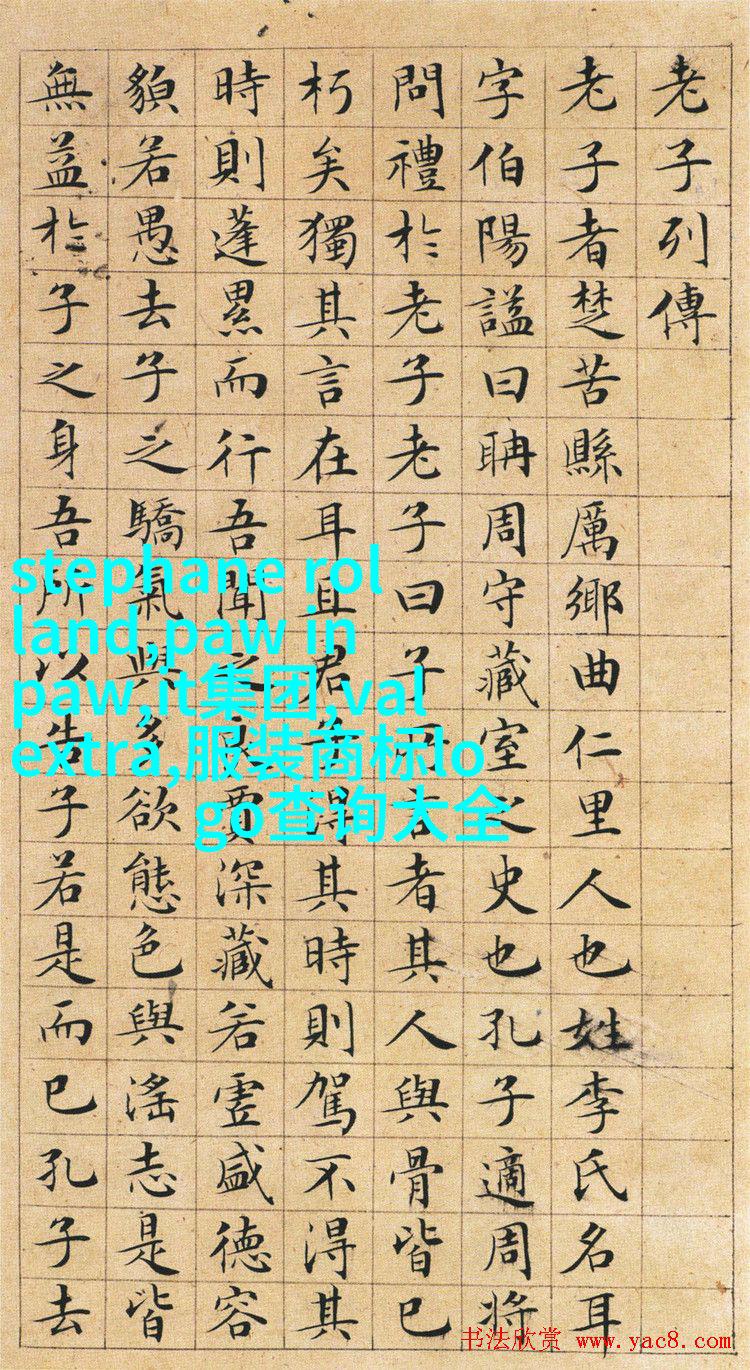 老子列傳
老子者楚苦縣厲鄉曲仁里人也姓李氏名耳
字伯陽謚曰聃周守藏室之史也孔子適周將
問禮於老子老子曰子所言者其人與骨皆已
朽矣獨其言在耳且君子得其時則駕不得其
時則蓬累而行吾聞之良賈深藏若虛盛德容
貌若愚去子之驕氣與多欲態色與淫志是皆
無益於子之身吾所以告子若是而已孔子去
stephane rol
land,paw in
paw,it集团,val
extra,服装商标lo
go查询大全
书法欣赏 www.yac8.com